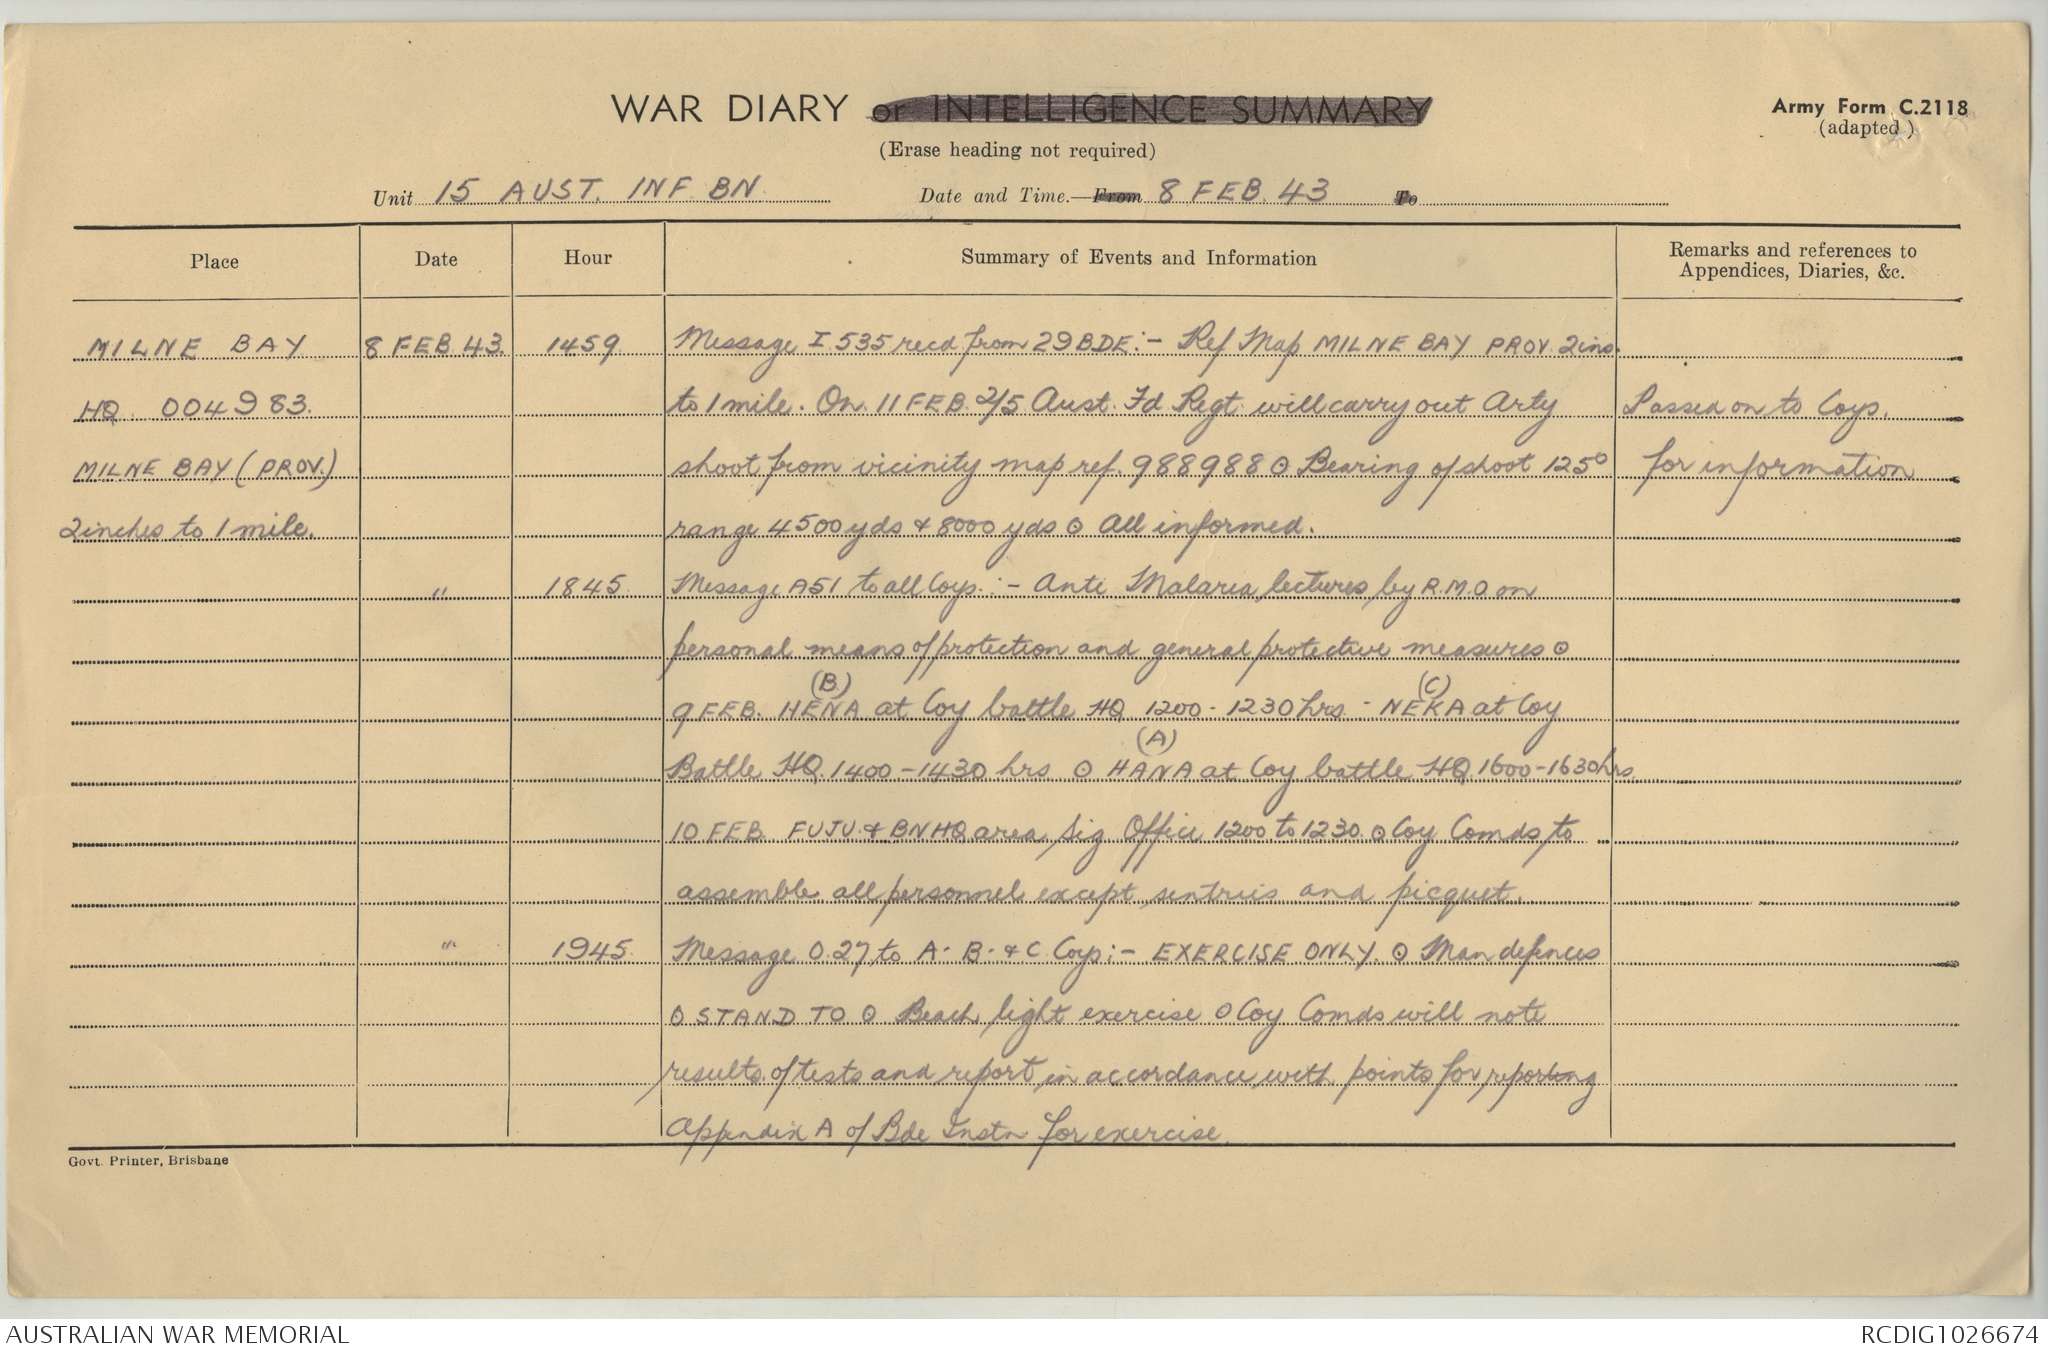 WAR DIARY or INTELLIGENCE SUMMARY
(Erase heading not required)
Army Form C.2118
(adapted )
Unit 15 AUST. INF. BN. Date and Time.—From 8 FEB. 43 To
Place Date Hour Summary of Events and Information Remarks and references to Appendices, Diaries, &c.
MILNE BAY 8 FEB 43. 1459. Message I 535 recd from 29 BDE:- Ref Map MILNE BAY PROV. 2ins.
HQ 004983. to 1 mile. On 11 FEB. 2/5 Aust. Fd Regt. will carry out Arty Passed on to Coys.
MILNE BAY (PROV.) shoot from vicinity map ref. 988988 ⊙ Bearing of shoot 125° for information
2 inches to 1 mile. range 4500 yds & 8000 yds ⊙ All informed.
" 1845. Message A51 to all Coys. :- Anti Malaria lectures by R.M.O on
personal means of protection and general protective measures ⊙
(B.) (C)
9 FEB. HENA at Coy battle HQ 1200 - 1230 hrs - NEKA at Coy
(A)
Battle HQ. 1400 - 1430 hrs ⊙ HANA at Coy battle HQ 1600 - 1630 hrs.
10 FEB. FUJU & BN HQ area Sig Office 1200 to 1230. ⊙ Coy Comds to
assemble all personnel except sentries and picquet.
" 1945. Message O.27 to A- B- & C Coys:- EXERCISE ONLY. ⊙ Man defences
⊙ STAND TO ⊙ Beach light exercise ⊙ Coy Comds will note
results of tests and report in accordance with points for reporting
Appendix A of Bde Instn for exercise.
Govt. Printer, Brisbane
AUSTRALIAN WAR MEMORIAL
RCDIG1026674